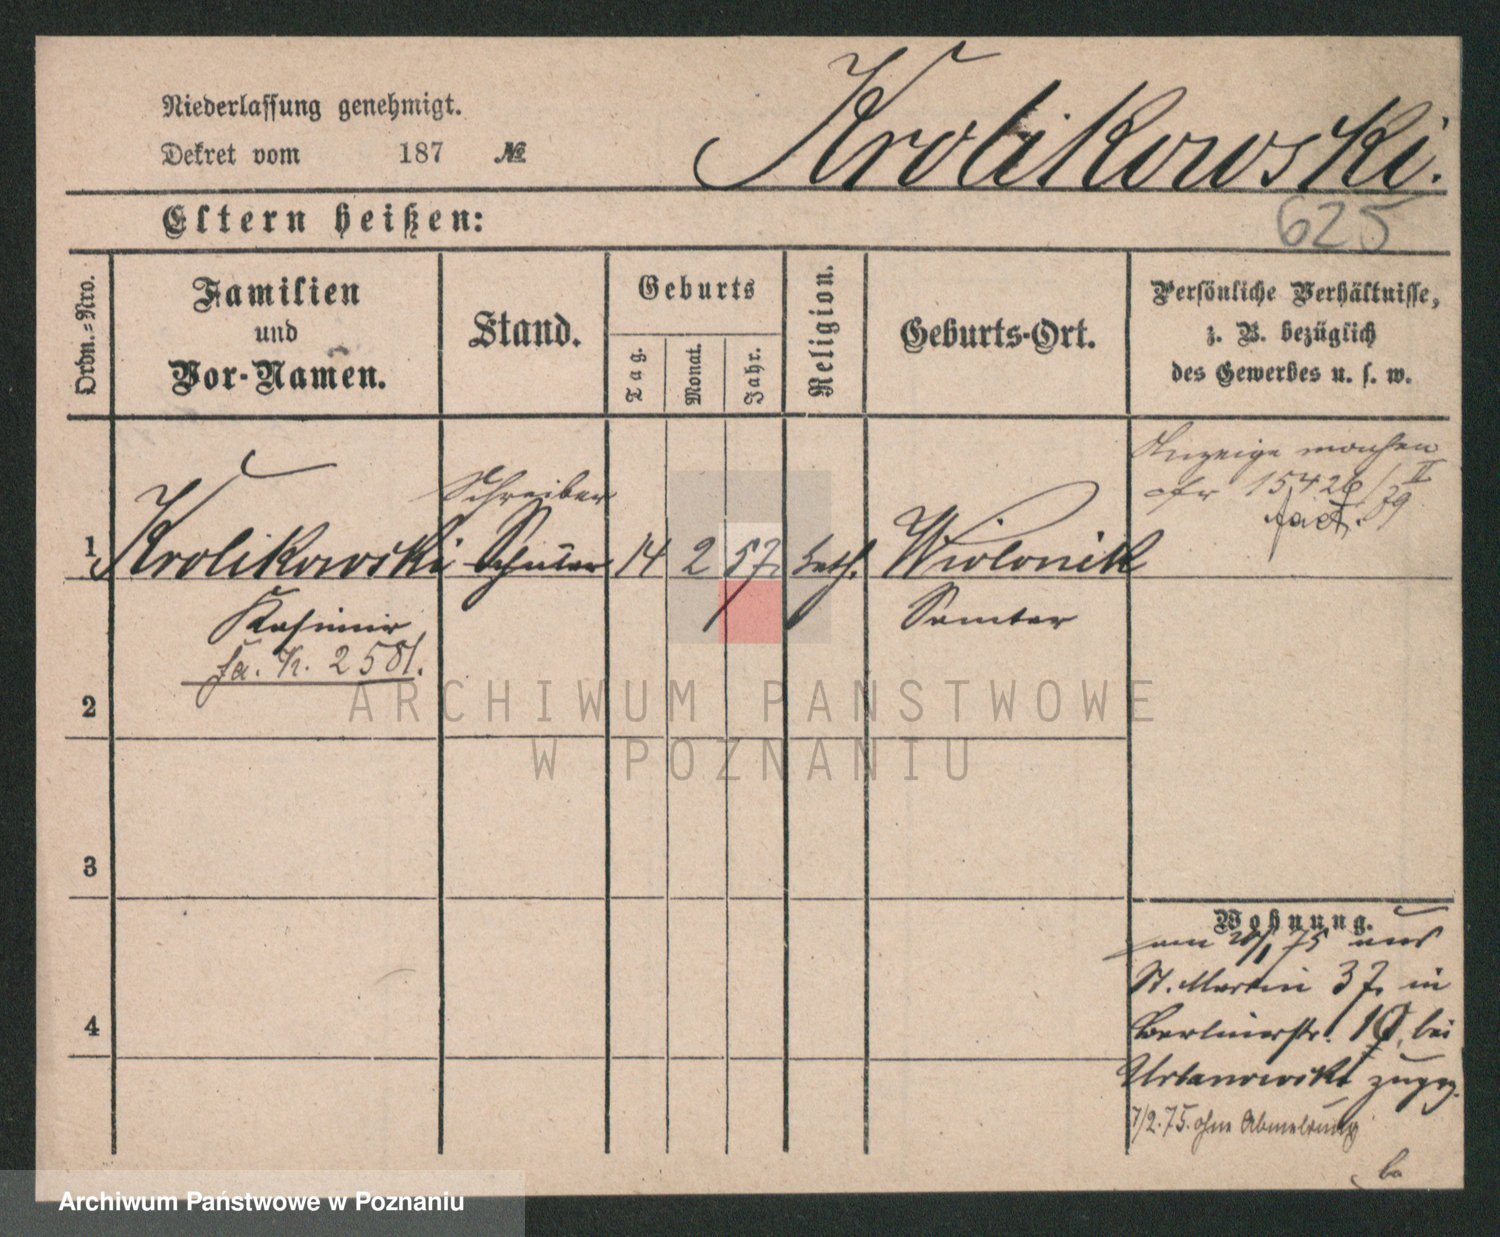 Niederlassung genehmigt.
Dekret vom 187 №
Krolikowski.
Eltern heißen:
625
Ordn.-Nro.
Familien
und
Vor-Namen.
Stand.
Geburts
Tag.
Monat.
Jahr.
Religion.
Geburts-Ort.
Persönliche Verhältnisse,
z. B. bezüglich
des Gewerbes u. s. w.
Anzeige machen
cfr 15426/II 79
fact.
Schreiber
1 Krolikowski Schüler 14 2 57 kath.
Kasimir Samter
fa. K. 2501.
2
3
4
Wohnung.
am 20/1 75 aus
St. Martin 37 in
Berlinerstr. bei
Urbanowski zugez.
7/2.75. ohne Abmeldung
ARCHIWUM PAŃSTWOWE
W POZNANIU
Archiwum Państwowe w Poznaniu